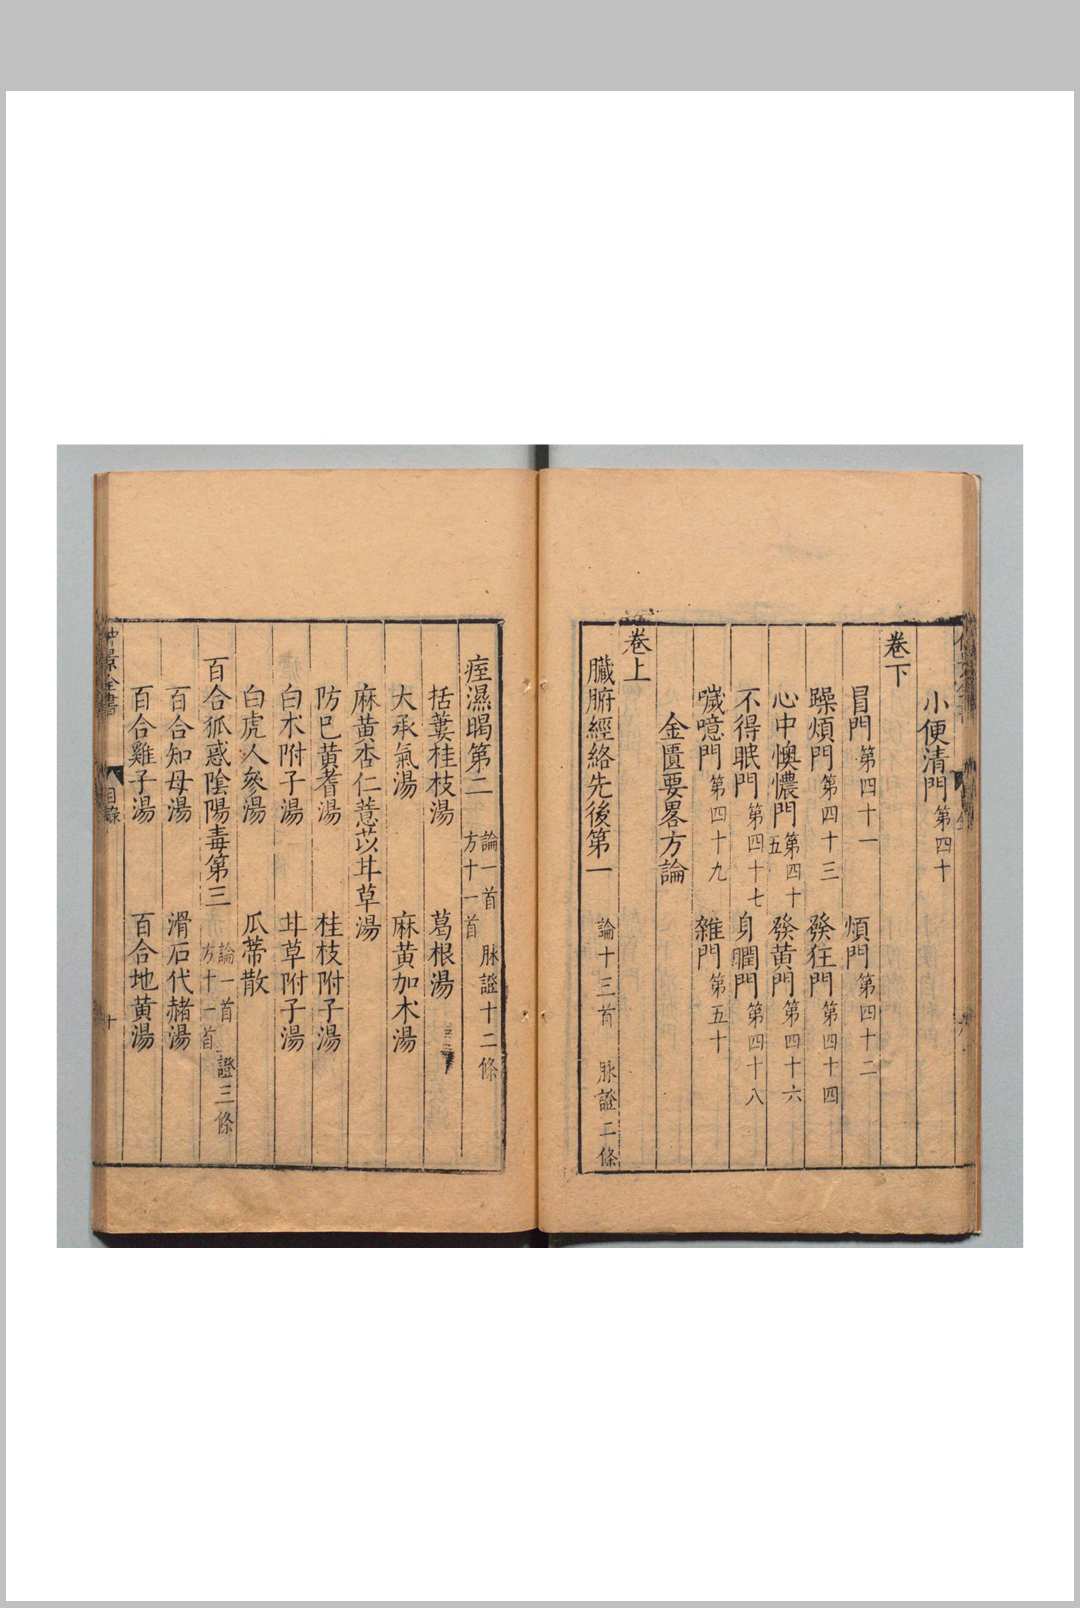 小便清門第四十
卷下
冒門第四十一 煩門第四十二
躁煩門第四十三 發狂門第四十四
心中懊憹門第四十五 發黄門第四十六
不得眠門第四十七 身瞤門第四十八
噦噫門第四十九 雜門第五十
金匱要畧方論
卷上
臓腑經絡先後第一 論十三首 脉證二條
痓濕暍第二 論一首 脉證十二條 方十一首
括蔞桂枝湯 葛根湯
大承氣湯 麻黄加术湯
麻黄杏仁薏苡甘草湯
防巳黄蓍湯 桂枝附子湯
白术附子湯 甘草附子湯
白虎人參湯 瓜蒂散
百合狐惑陰陽毒第三 論一首 證三條 方十一首
百合知母湯 滑石代赭湯
百合雞子湯 百合地黄湯
仲景全書 目錄 十